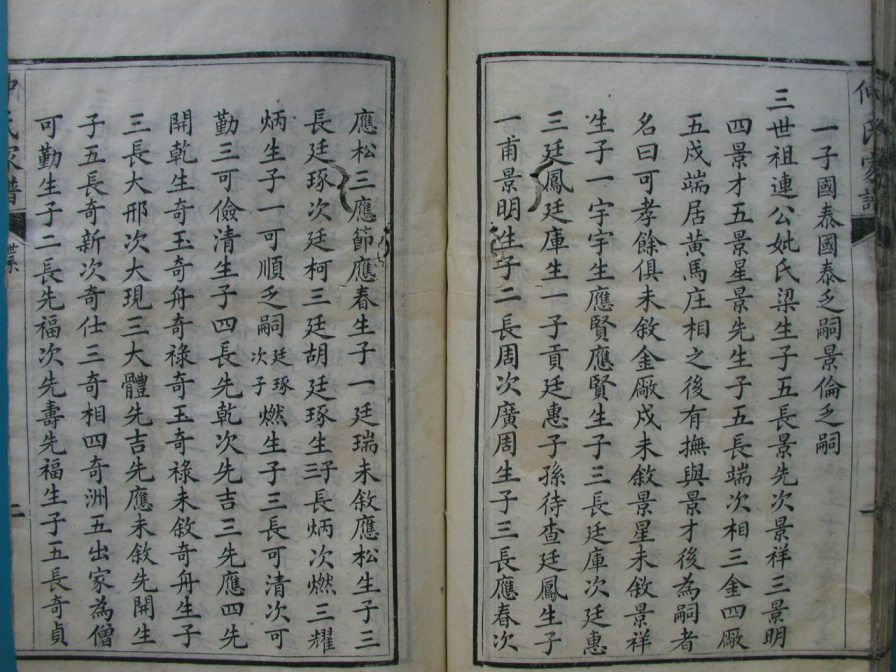 一子國泰國泰乏嗣景倫乏嗣
三世祖連公妣氏梁生子五長景先次景祥三景明
四景才五景星景先生子五長端次相三金四厰
五成端居黃馬庄相之後有撫與景才後為嗣者
名曰可孝餘俱未敘金厰成未敘景星未敘景祥
生子一宇宇生應賢應賢生子三長廷庫次廷惠
三廷鳳廷庫生一子貢廷惠子孫待查廷鳳生子
一甫景明生子二長周次廣周生子三長應春次
應松三應節應春生子一廷瑞未敘應松生子三
長廷琢次廷柯三廷胡廷琢生子三長炳次燃三耀
炳生子一可順乏嗣廷琢次子燃生子三長可清次可
勤三可儉清生子四長先乾次先吉三先應四先
開乾生奇玉奇舟奇祿奇玉奇祿未敘奇舟生子
三長大邢次大現三大體先吉先應未敘先開生
子五長奇新次奇仕三奇相四奇洲五出家為僧
可勤生子二長先福次先壽先福生子五長奇貞
氏家譜
二